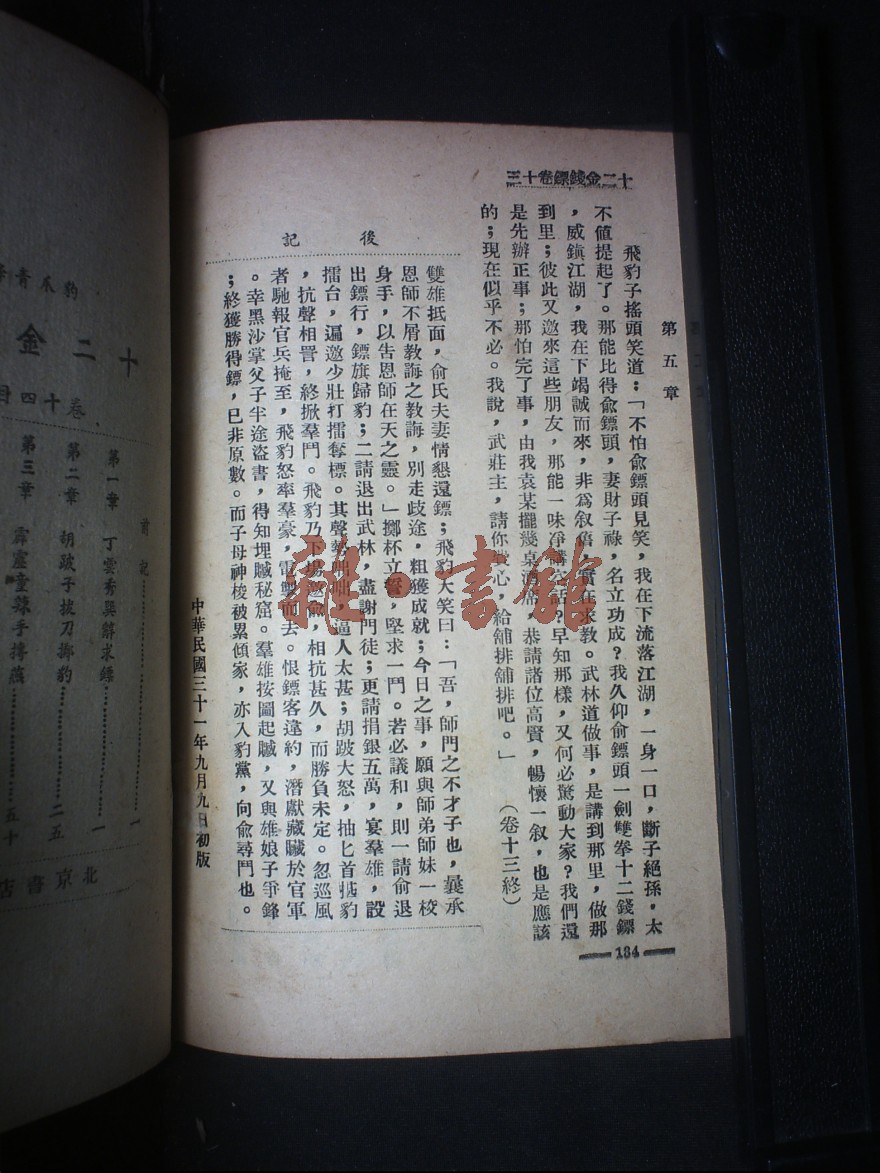 三十卷鏢錢金二十
第五章
飛豹子搖頭笑道：「不怕俞鏢頭見笑，我在下流落江湖，一身一口，斷子絕孫，太
不値提起了。那能比得俞鏢頭，妻財子祿，名立功成？我久仰俞鏢頭一劍雙拳十二錢鏢
，威鎭江湖，我在下竭誠而來，非爲叙舊，實在求教。武林道做事，是講到那里，做那
到里；彼此又邀來這些朋友，那能一味淨講話？早知那樣，又何必驚動大家？我們還
是先辦正事；那怕完了事，由我袁某擺幾桌酒席，恭請諸位高賢，暢懷一叙，也是應該
的；現在似乎不必。我說，武莊主，請你心，給舖排舖排吧。」（卷十三終）
184
後記
雙雄抵面，俞氏夫妻情懇還鏢；飛豹大笑曰：「吾，師門之不才子也，曩承
恩師不屑教誨之教誨，別走歧途，粗獲成就；今日之事，願與師弟師妹一校
身手，以吿恩師在天之靈。」擲杯立誓，堅求一鬥。若必議和，則一請俞退
出鏢行，鏢旗歸豹；二請退出武林，盡謝門徒；更請捐銀五萬，宴羣雄，設
擂台，遍邀少壯打擂奪標。其聲勢咄咄，逼人太甚；胡跛大怒，抽匕首掷豹
，抗聲相詈，終掀羣鬥。飛豹乃下場邀俞，相抗甚久，而勝負未定。忽巡風
者馳報官兵掩至，飛豹怒率羣豪，電掣而去。恨鏢客違約，潛獻藏贓於官軍
。幸黑沙掌父子半途盜書，得知埋贓秘窟。羣雄按圖起贓，又與雄娘子爭鋒
；終獲勝得鏢，已非原數。而子母神梭被累傾家，亦入豹黨，向俞尋鬥也。
中華民國三十一年九月九日初版
雜·書館
豹爪青
十二金
卷十四目
前記 一
第一章 丁雲秀巽辭求鏢 一
第二章 胡跛子拔刀擲豹 二五
第三章 霹靂童辣手摶燕 五十
北京書店